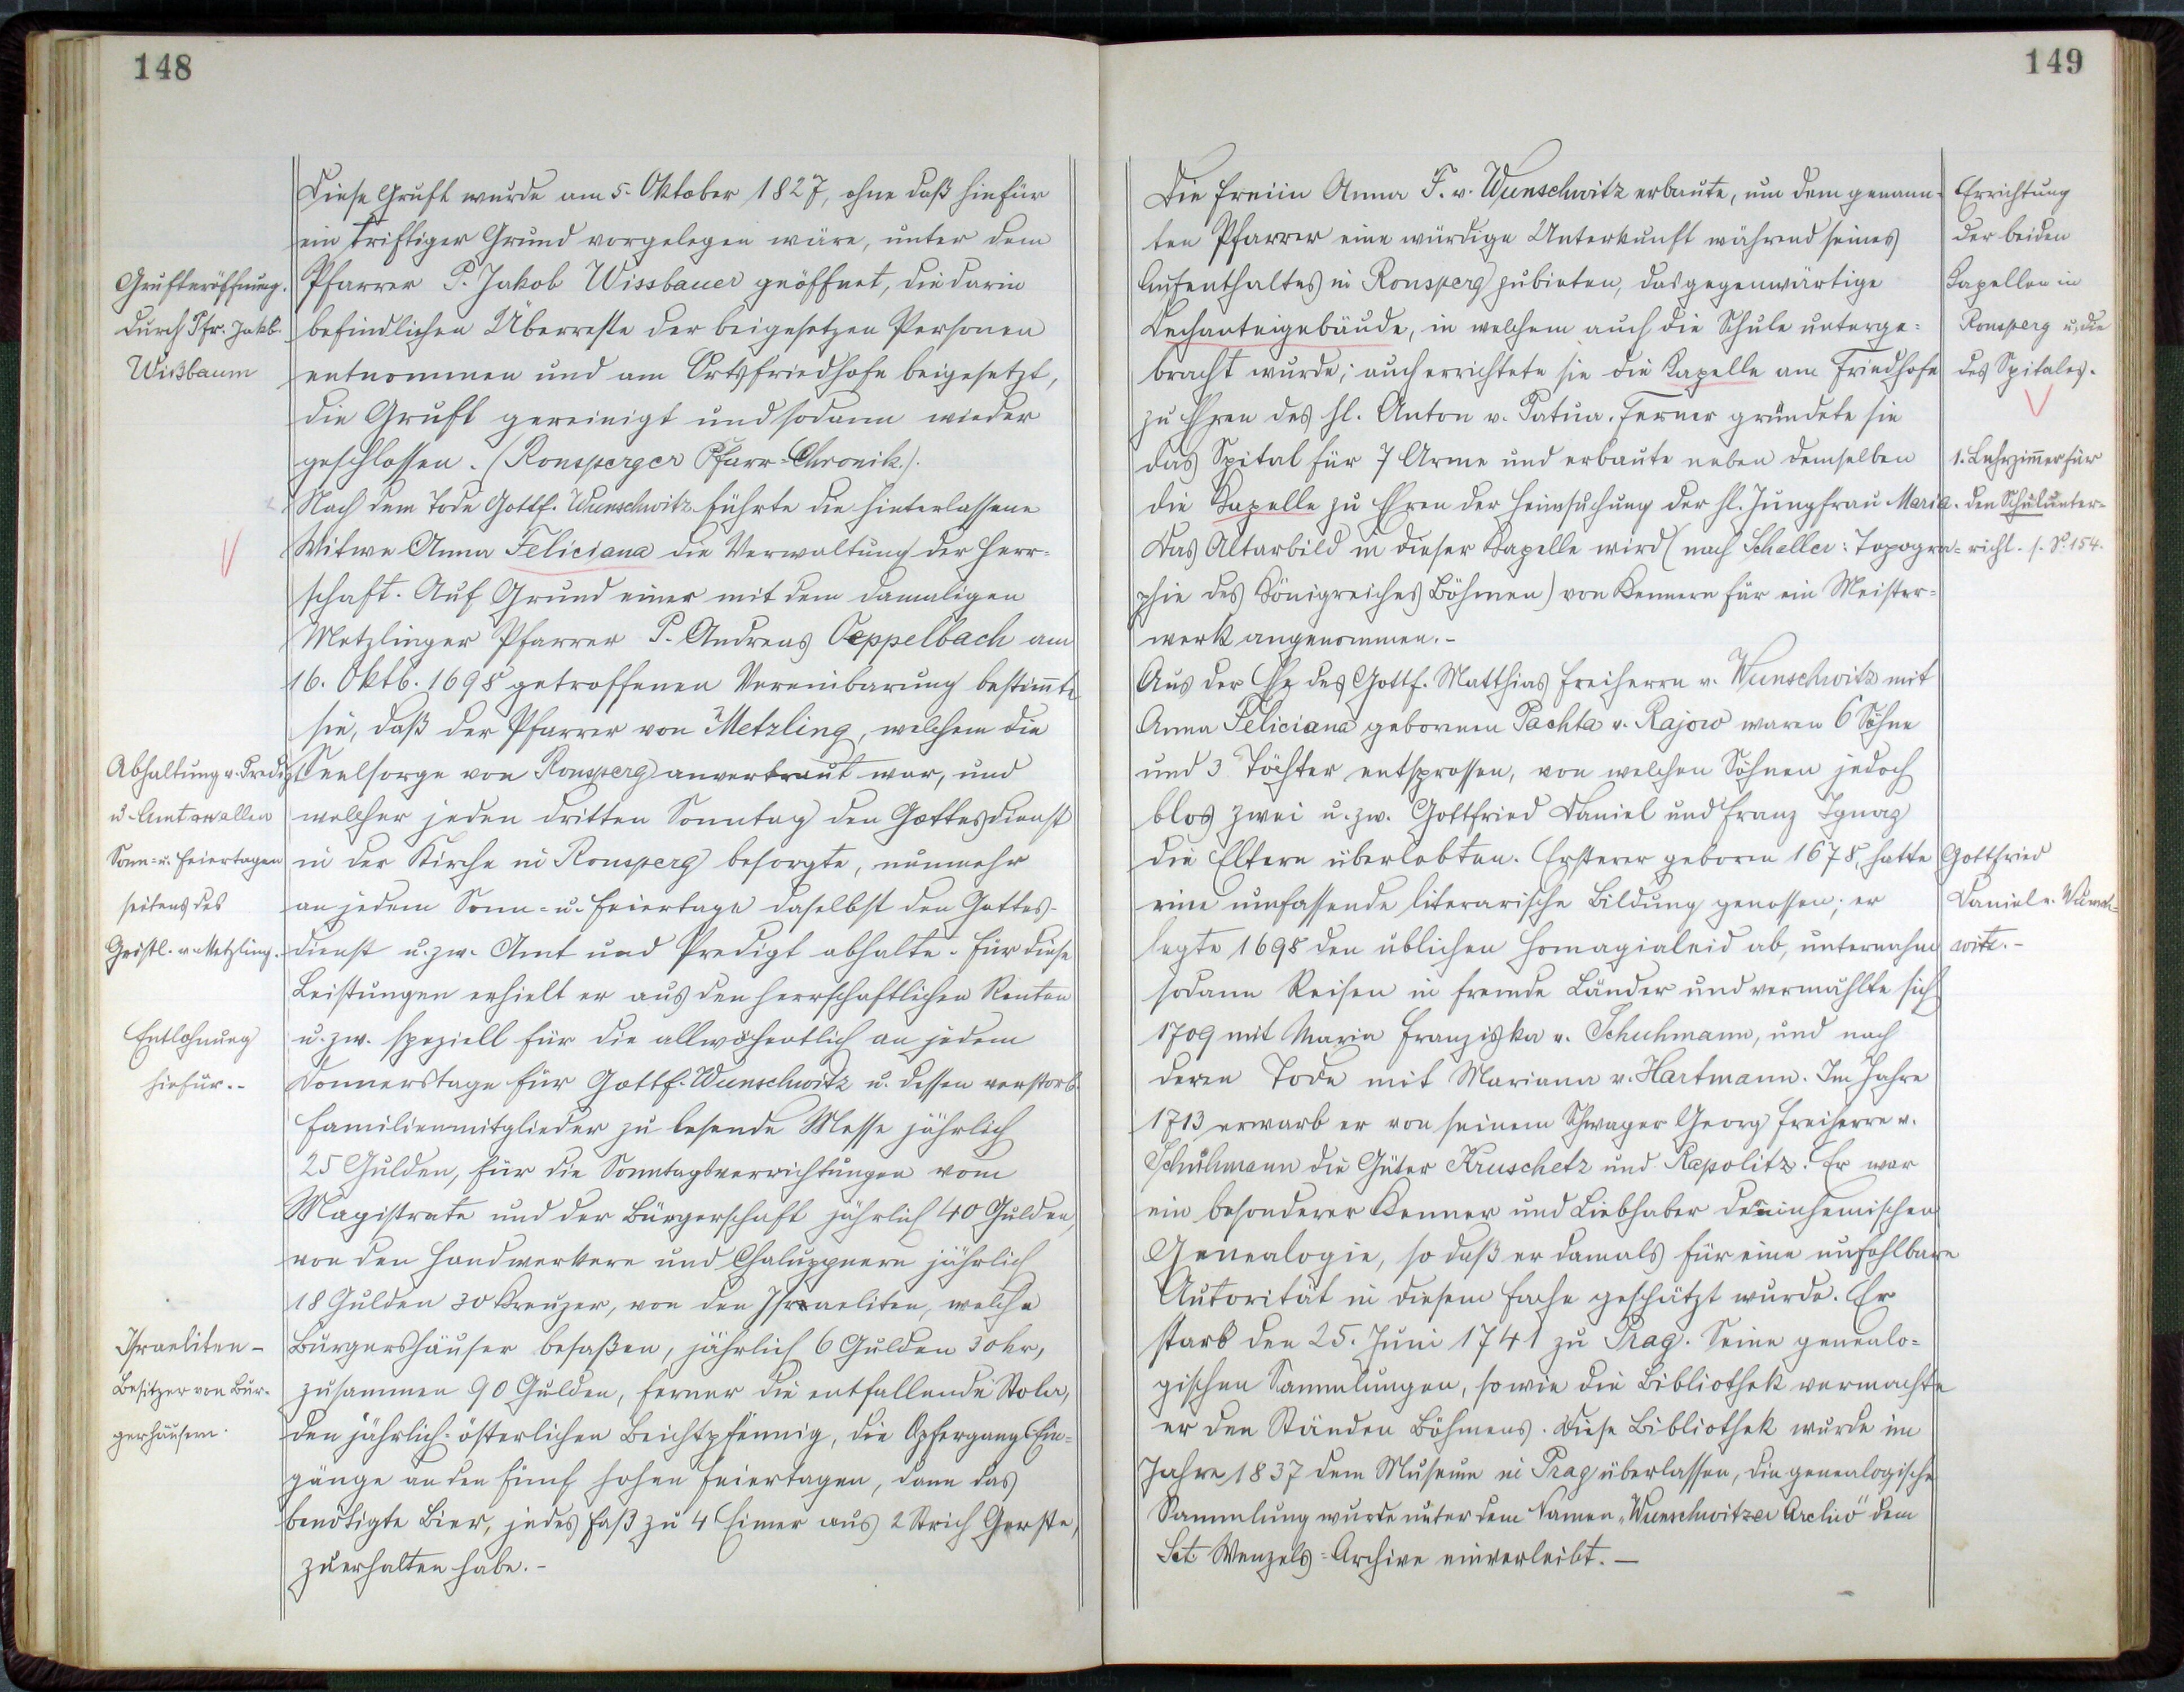 148
Diese Gruft wurde am 5. Oktober 1827, ohne daß hiefür
ein triftiger Grund vorgelegen wäre, unter dem
Pfarrer P. Jakob Wissbauer geöffnet, die darin
befindlichen Überreste der beigesetzen Personen
entnommen und am Ortsfriedhofe beigesetzt,
die Gruft gereinigt und sodann wieder
geschlossen. (Ronsperger Pfarr-Chronik.).
Nach dem Tode Gottf. Wunschwitz führte die hinterlassene
Witwe Anna Feliciana die Verwaltung der Herr=
schaft. Auf Grund einer mit dem damaligen
Metzlinger Pfarrer P. Andreas Oeppelbach am
16. Oktb. 1698 getroffenen Vereinbarung bestimte
sie, daß der Pfarrer von Metzling, welchem die
Seelsorge von Ronsperg anvertraut war, und
welcher jeden dritten Sonntag den Gottesdienst
in der Kirche in Ronsperg besorgte, nunmehr
an jedem Sonn- u. Feiertage daselbst den Gottes-
dienst u. zw. Amt und Predigt abhalte. Für diese
Leistungen erhielt er aus den herrschaftlichen Renten
u. zw. speziell für die allwöchentlich an jedem
Donnerstage für Gottf. Wunschwitz u. dessen verstorb.
Familienmitglieder zu lesende Messe jährlich
25 Gulden, für die Sonntagsverrichtungen vom
Magistrate und der Bürgerschaft jährlich 40 Gulden,
von den Handwerkern und Chaluppnern jährlich
18 Gulden 30 Kreuzer, von den Israeliten, welche
Bürgershäuser besaßen, jährlich 6 Gulden 30 kr,
zusammen 90 Gulden, ferner die entfallende Stola,
den jährlich-österlichen Beichtpfennig, die Opfergang Ein=
gänge an den fünf hohen Feiertagen, dann das
benötigte Bier, jedes Faß zu 4 Eimer aus 2 Strich Gerste,
zu erhalten habe. -
Grufteröffnung.
durch Pfr. Jakb.
Wißbaum
Abhaltung v. Predig
u Amt an allen
Sonn- u. Feiertagen
seitens des
Geistl. v. Metzling.
Entlohnung
hiefür. -
Israeliten -
Besitzer von Bür-
gerhäusern.
149
Die Freiin Anna F. v. Wunschwitz erbaute, um dem genann-
ten Pfarrer eine würdige Unterkunft während seines
Aufenthaltes in Ronsperg zu bieten, das gegenwärtige
Dechanteigebäude, in welchem auch die Schule unterge=
bracht wurde; auch errichtete sie die Kapelle am Friedhofe
zu Ehren des hl. Anton v. Patua. Ferner gründete sie
das Spital für 7 Arme und erbaute neben demselben
die Kapelle zu Ehren der Heimsuchung der hl. Jungfrau Maria.
Das Altarbild in dieser Kapelle wird (nach Schaller: Topogra=
phie des Königreiches Böhmen) von Kennern für ein Meister=
werk angenommen. -
Aus der Ehe des Gottf. Matthias Freiherrn v. Wunschwitz mit
Anna Feliciana geborenen Pachta v. Rajow waren 6 Söhne
und 3 Töchter entsprossen, von welchen Söhnen jedoch
blos zwei u. zw. Gottfried Daniel und Franz Ignaz
die Eltern überlebten. Ersterer geboren 1678, hatte
eine umfassende literarische Bildung genossen; er
legte 1698 den üblichen Homagialeid ab, unternahm
sodann Reisen in fremde Länder und vermählte sich
1709 mit Maria Franziska v. Schuhmann, und nach
deren Tode mit Mariann v. Hartmann. Im Jahre
1713 erwarb er von seinem Schwager Georg Freiherrn v.
Schuhmann die Güter Kruschetz und Rapolitz. Er war
ein besonderer Kenner und Liebhaber der einheimischen
Genealogie, so daß er damals für eine unfehlbare
Autorität in diesem Fache geschätzt wurde. Er
starb den 25. Juni 1741 zu Prag. Seine genealo=
gischen Sammlungen, sowie die Bibliothek vermachte
er den Ständen Böhmens. Diese Bibliothek wurde im
Jahre 1837 dem Museum in Prag überlassen, die genealogische
Sammlung wurde unter dem Namen „Wunschwitzer Archiv" dem
Sct. Wenzels=Archive einverleibt. -
Errichtung
der beiden
Kapellen in
Ronsperg u. die
des Spitales.
1. Lehrzimer für
den Schulunter-
richt. s. S. 154.
Gottfried
Daniel v. Wunsch=
witz. -